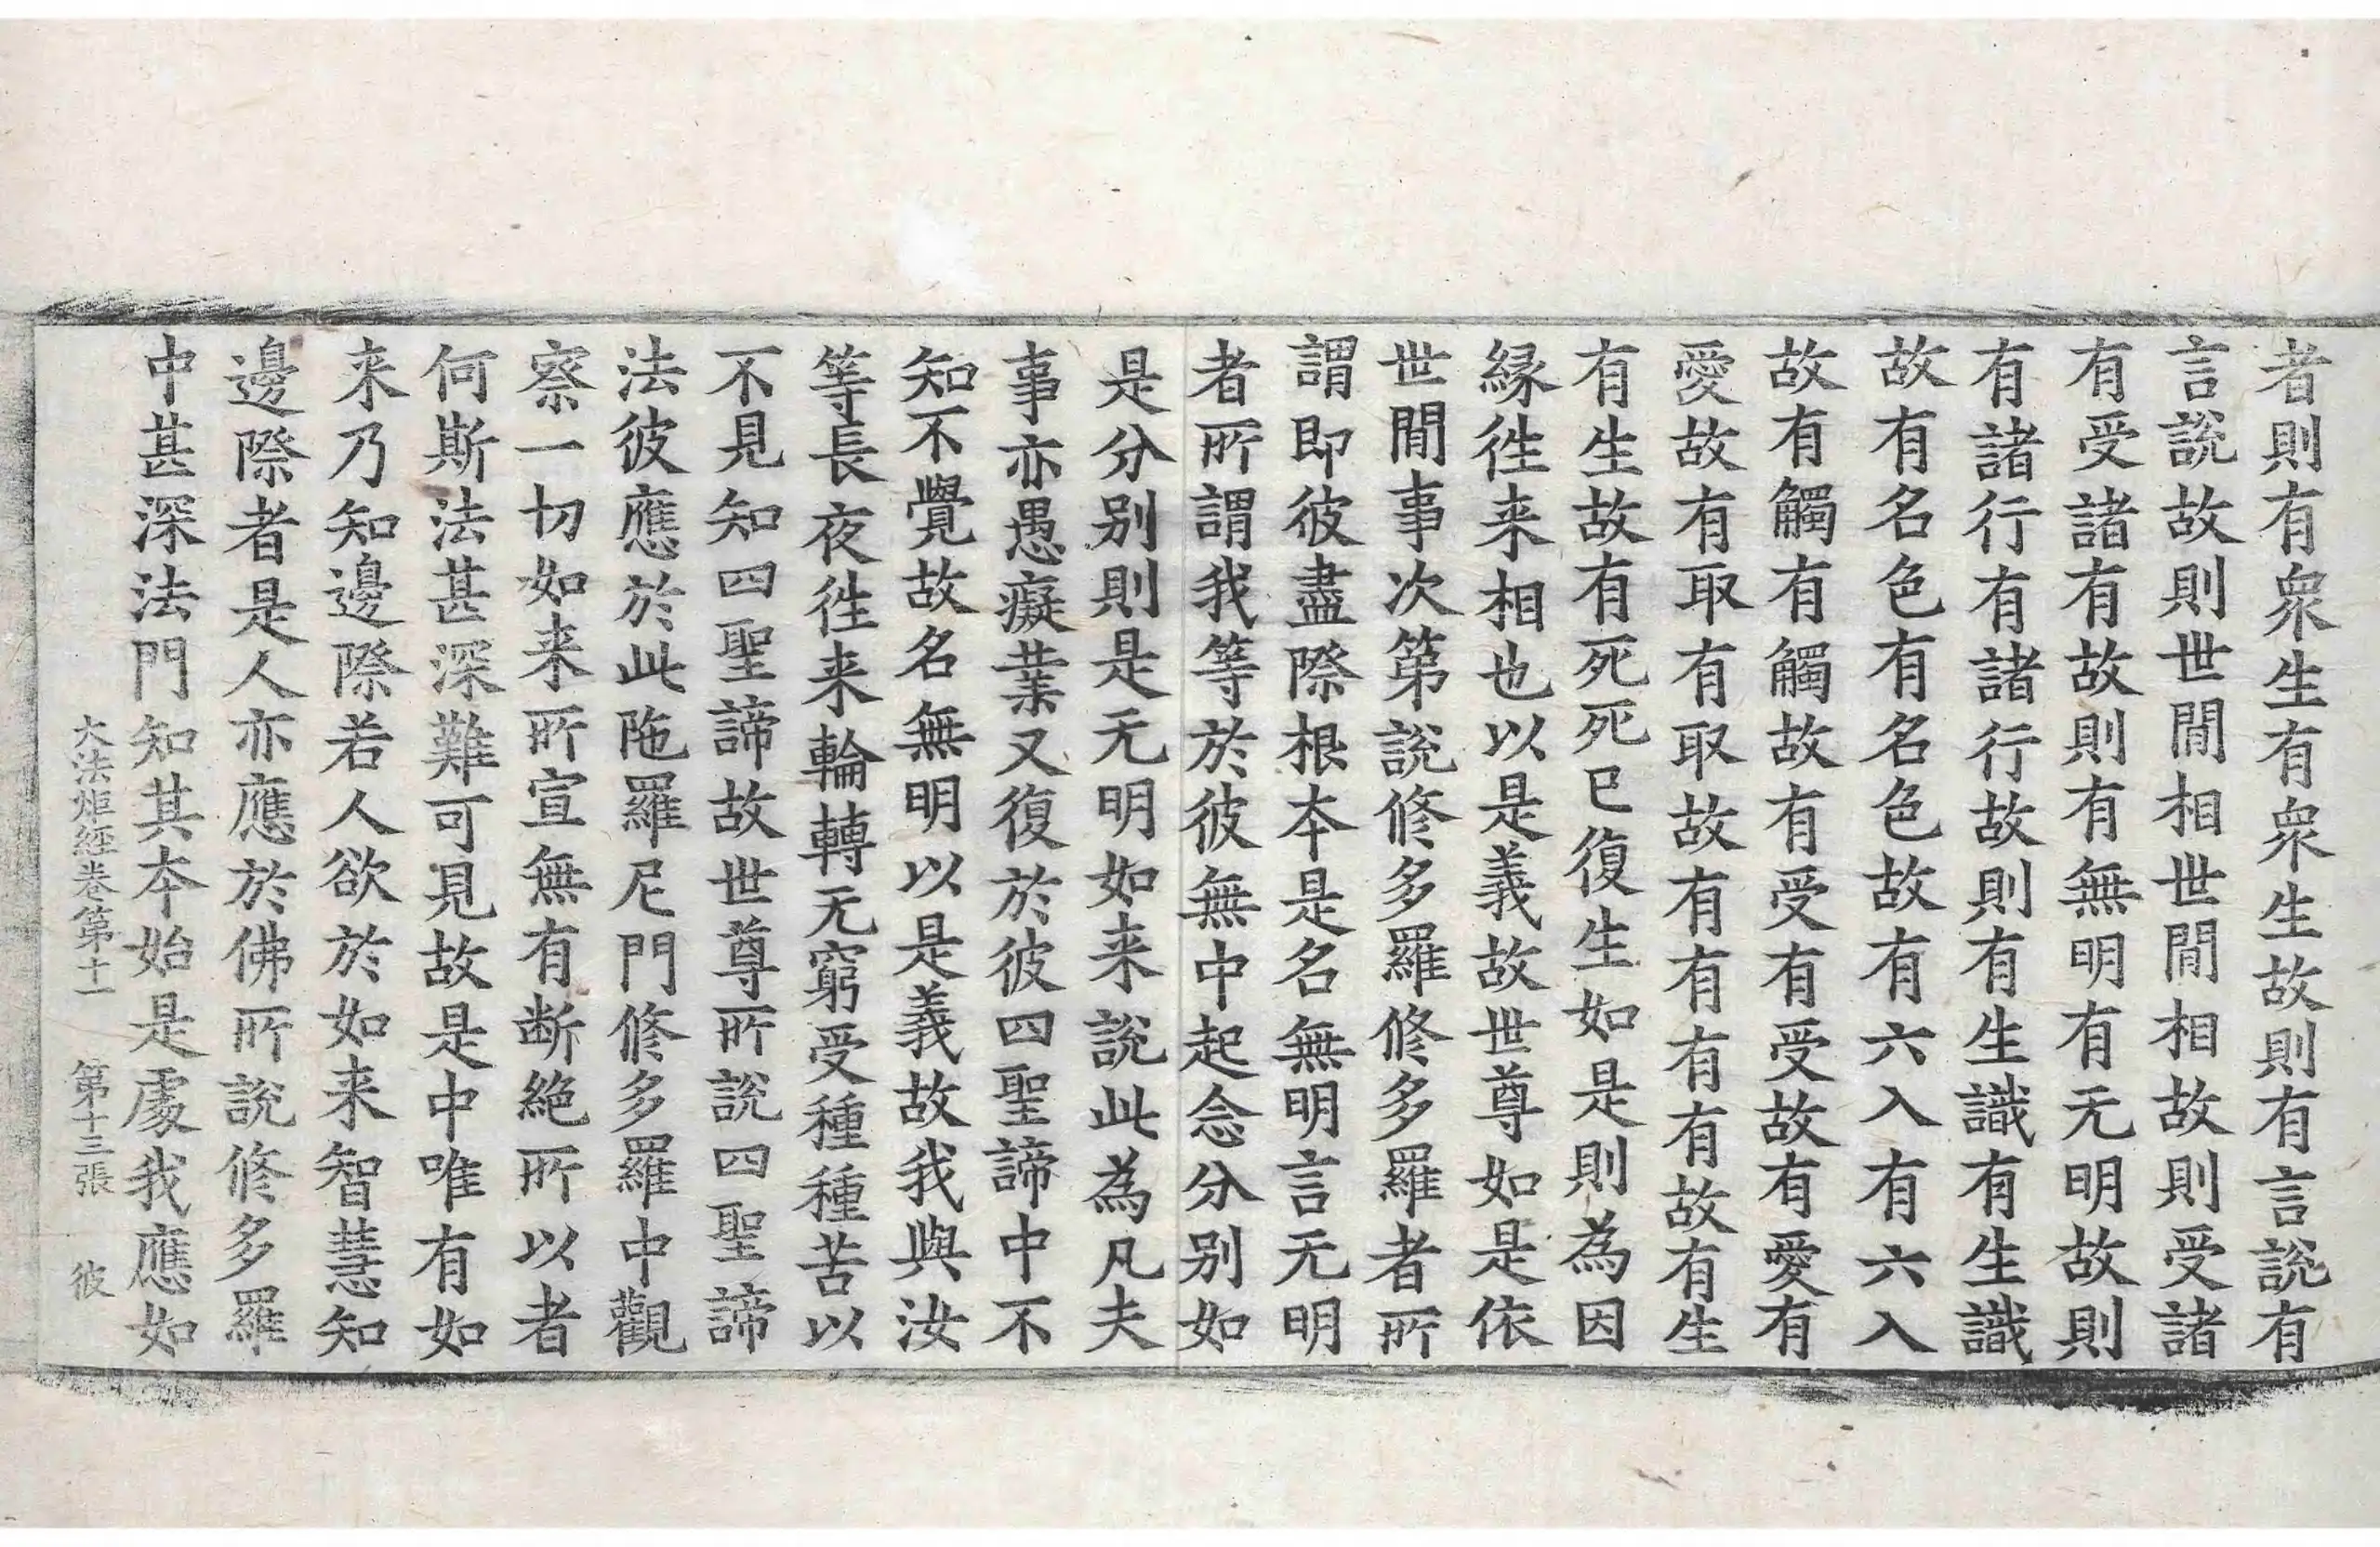 者則有衆生有衆生故則有言說有
言說故則世閒相世閒相故則受諸
有受諸有故則有無明有无明故則
有諸行有諸行故則有生識有生識
故有名色有名色故有六入有六入
故有觸有觸故有受有受故有愛有
愛故有取有取故有有有有故有生
有生故有死死已復生如是則為因
緣徃来相也以是義故世尊如是依
世閒事次第說修多羅修多羅者所
謂即彼盡際根本是名無明言无明
者所謂我等於彼無中起念分别如
是分别則是无明如来說此為凡夫
事亦愚癡業又復於彼四聖諦中不
知不覺故名無明以是義故我與汝
等長夜徃来輪轉无窮受種種苦以
不見知四聖諦故世尊所說四聖諦
法彼應於此陁羅尼門修多羅中觀
察一切如来所宣無有断絶所以者
何斯法甚深難可見故是中唯有如
来乃知邊際若人欲於如来智慧知
邊際者是人亦應於佛所說修多羅
中甚深法門知其本始是處我應如
大法炬經卷第十一 第十三張 彼